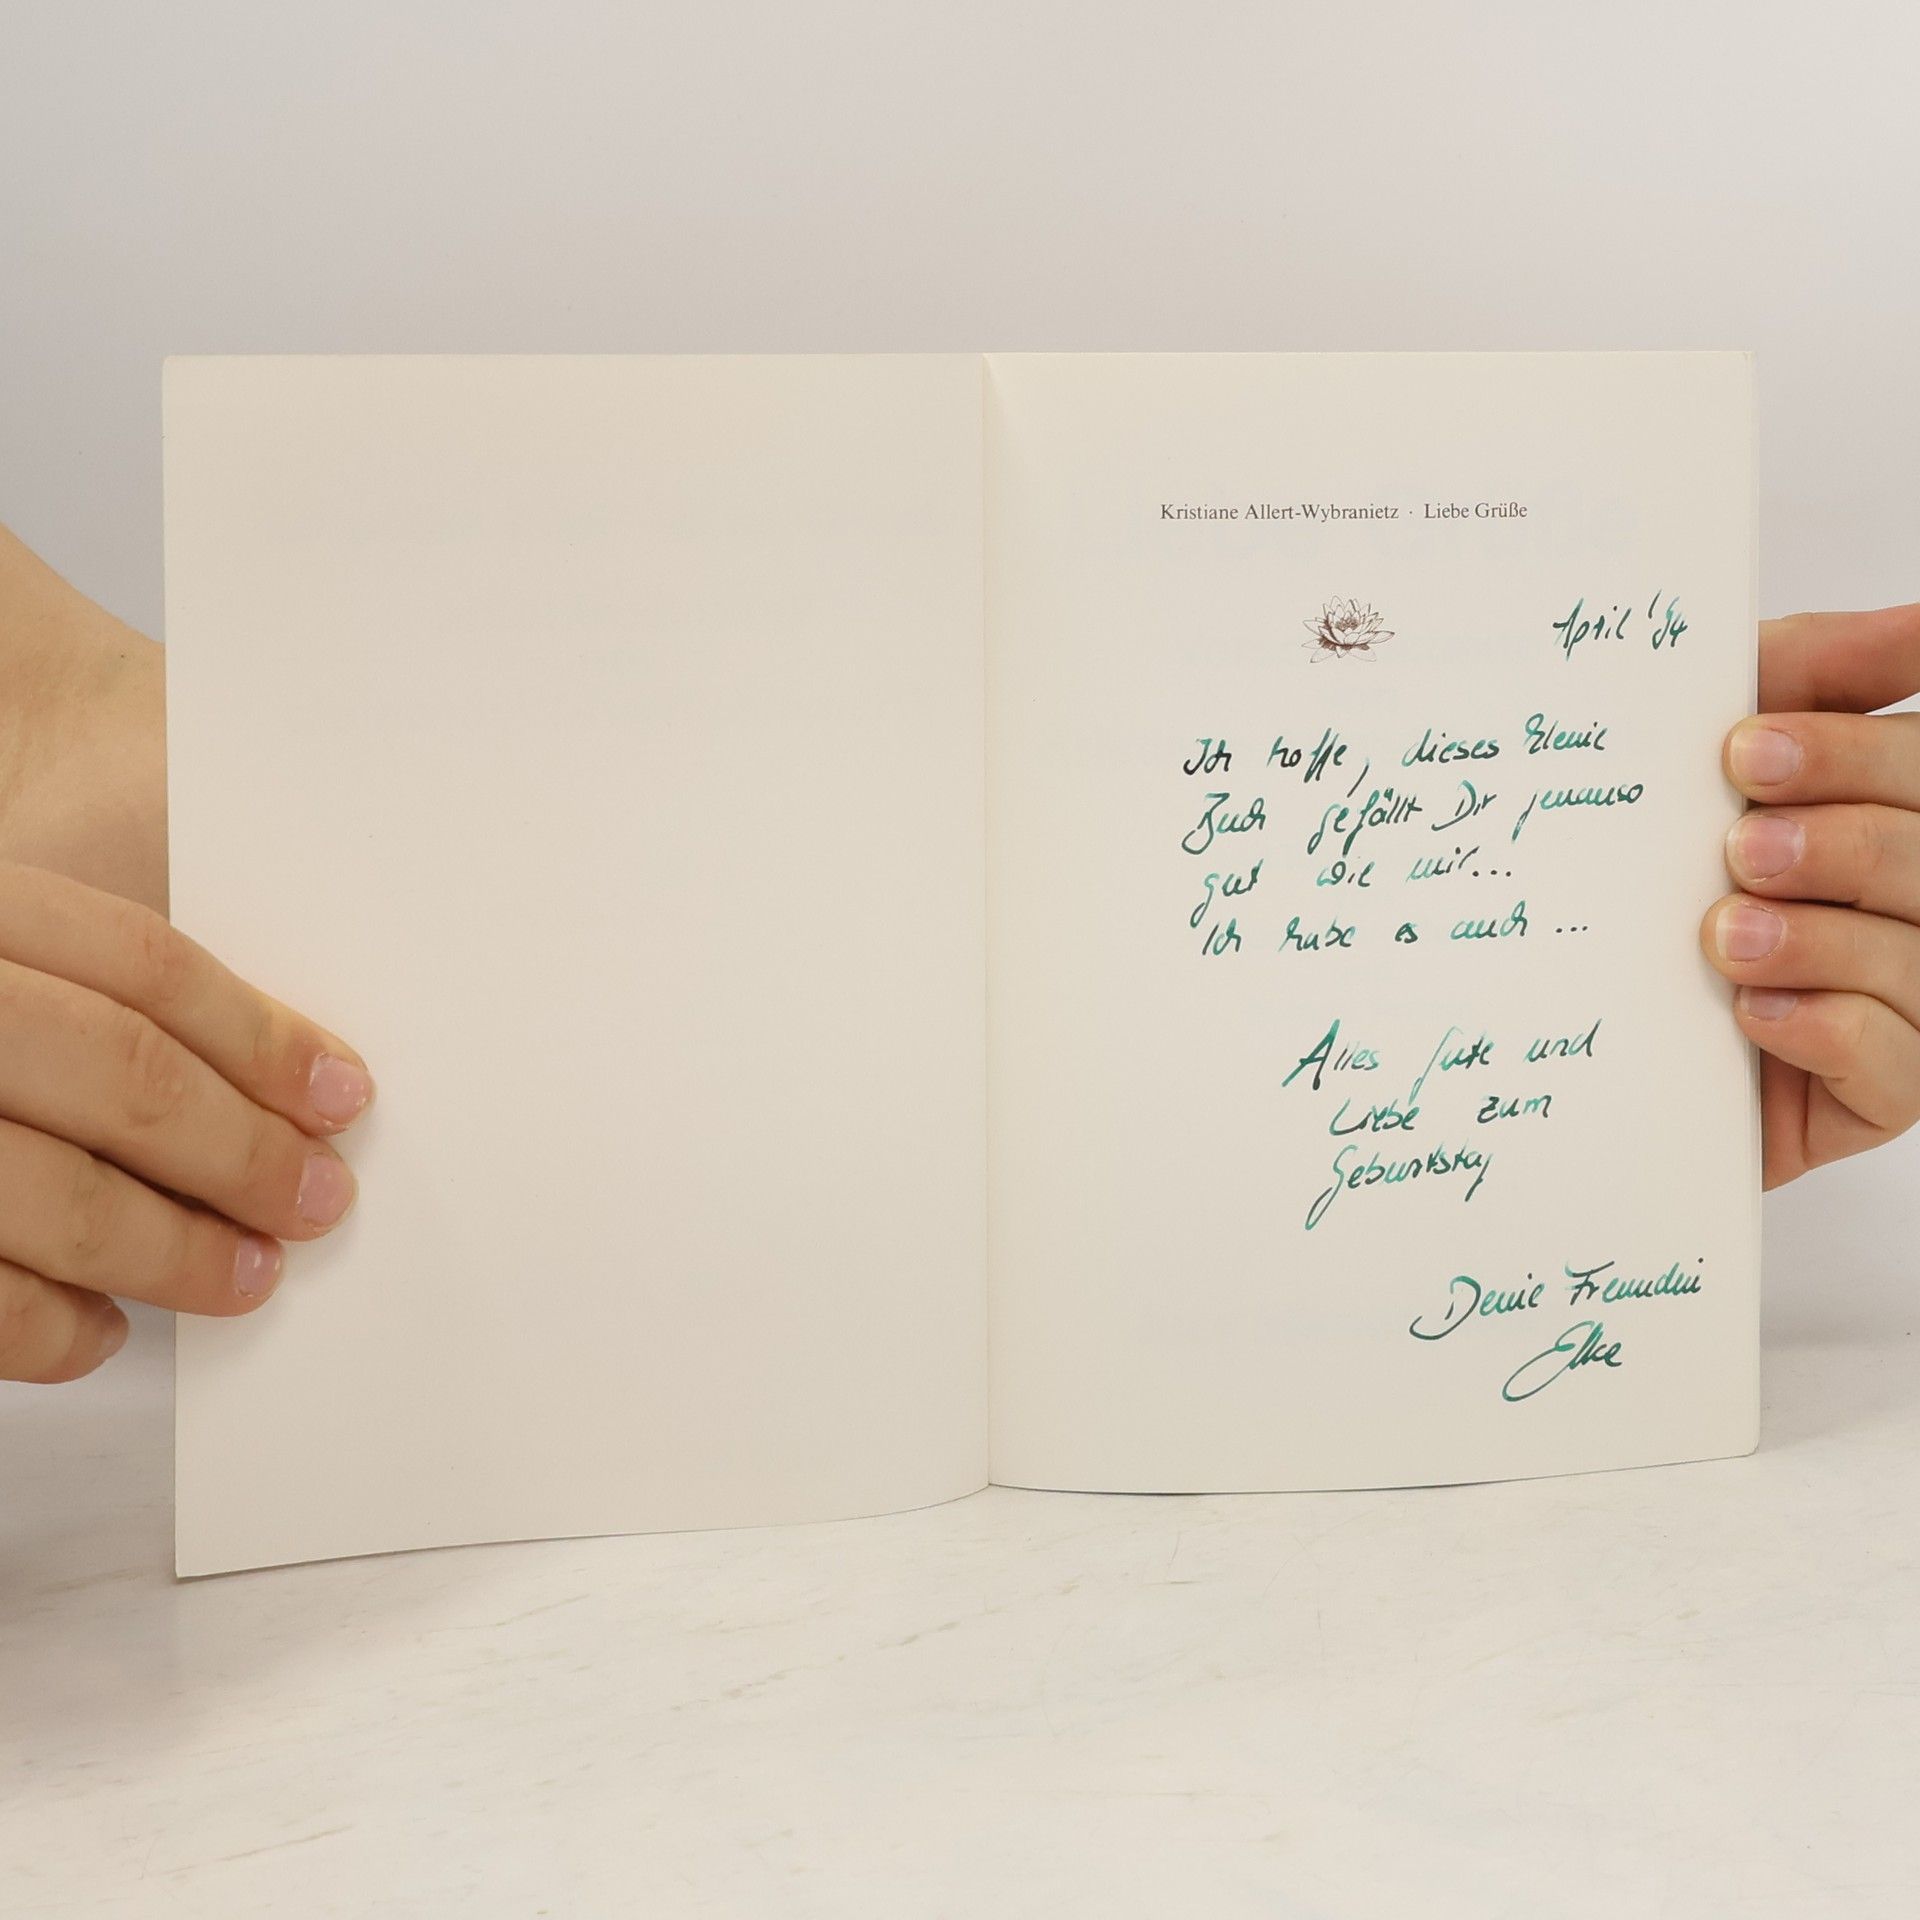 Kristiane Allert-Wybranietz · Liebe Grüße
April '94
Ich hoffe, dieses kleine
Buch gefällt Dir genauso
gut wie mir...
Ich habe es auch ...
Alles Gute und
Liebe zum
Geburtstag
Deine Freundin
Elke